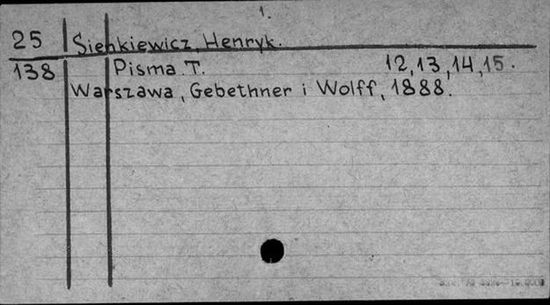 1.
25 Sienkiewicz, Henryk.
138 Pisma. T. 12, 13, 14, 15.
Warszawa, Gebethner i Wolff, 1888.